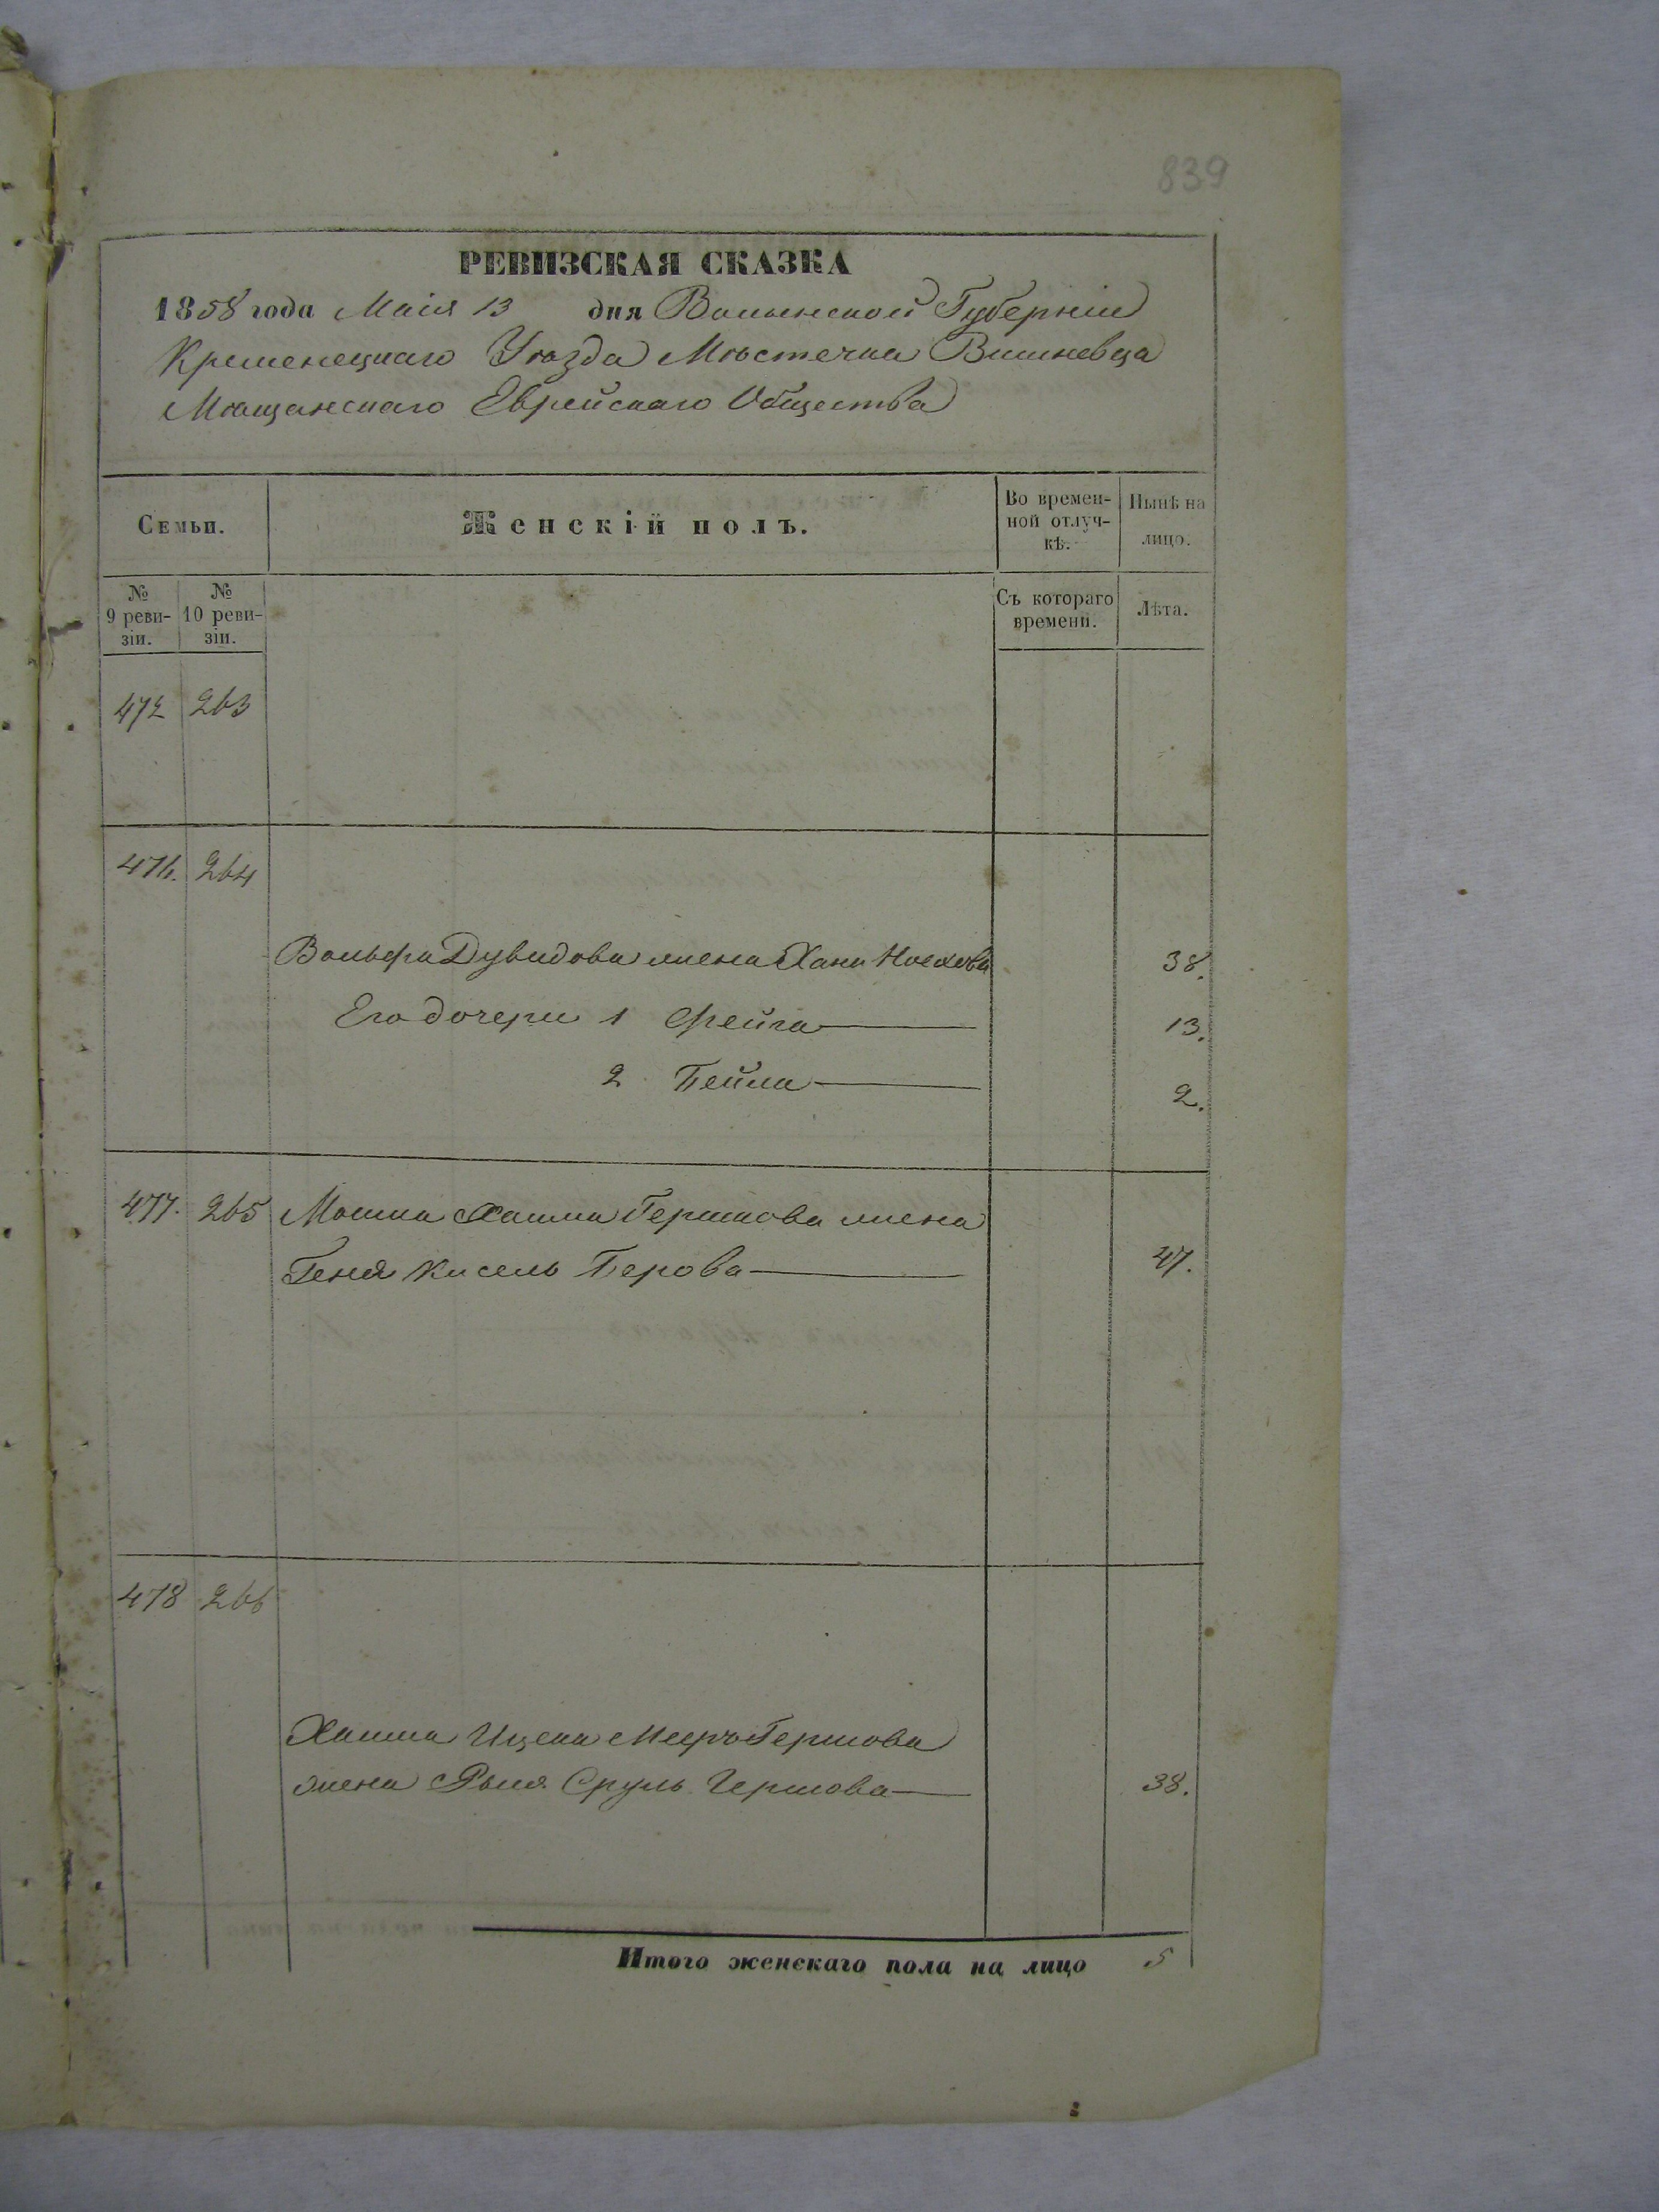 839
РЕВИЗСКАЯ СКАЗКА
1858 года Маія 13 дня Волынской Губерніи
Кременецкаго Уѣзда Мѣстечка Вишневца
Мѣщанскаго Еврейскаго Общества
Семьи.
Женскій полъ.
Во времен-
ной отлуч-
кѣ.
Нынѣ на
лицо.
№
9 реви-
зіи.
№
10 реви-
зіи.
Съ котораго
времени.
Лѣта.
472 263
476. 264
Вольфа Дувидова жена Хана Носхова 38.
Его дочери 1 Фейга 13.
2 Бейла 2.
477. 265 Мошка Хаима Гершкова жена
Геня Кисель Берова 47.
478 266
Хаима Ицека Мееръ Гершова
жена Рыся Сруль Гершова 38.
Итого женскаго пола на лицо 5